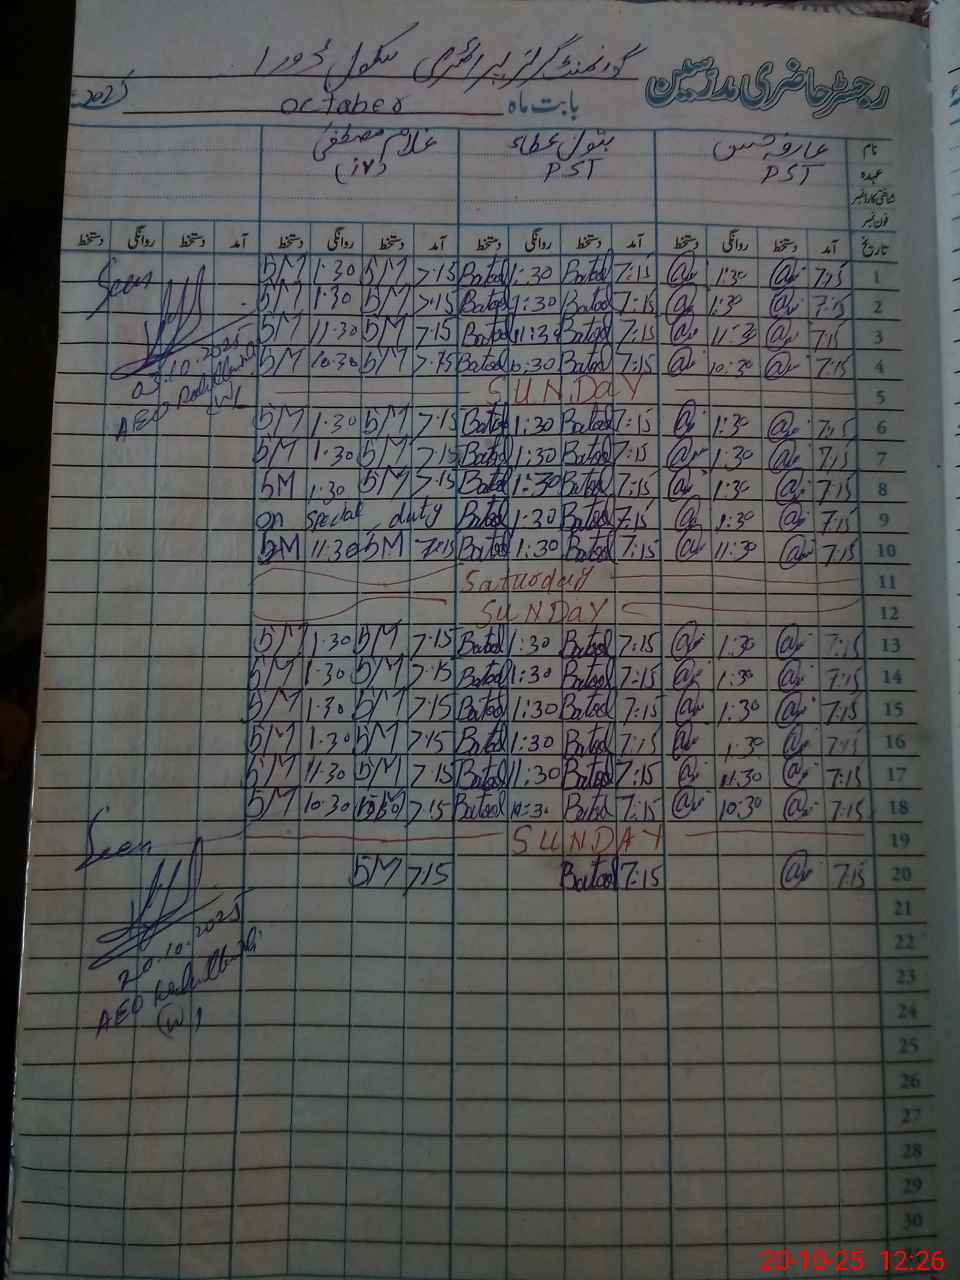 گورنمنٹ گرلز پرائمری سکول
رجسٹر حاضری مدرسین
بابت ماہ october 2025
نام عارفہ شمس بتول عطاء غلام مصطفیٰ
عہدہ PST PST
شناختی کارڈ نمبر
فون نمبر
تاریخ آمد دستخط روانگی دستخط آمد دستخط روانگی دستخط آمد دستخط روانگی دستخط آمد دستخط روانگی دستخط
1 7:15 1:30 7:15 Batool 1:30 Batool 7:15 5M 1:30 5M
2 7:15 1:30 7:15 Batool 1:30 Batool 7:15 5M 1:30 5M
3 7:15 11:30 7:15 Batool 11:30 Batool 7:15 5M 11:30 5M
4 7:15 10:30 7:15 Batool 10:30 Batool 7:15 5M 10:30 5M
5 SUNDAY
6 7:15 1:30 7:15 Batool 1:30 Batool 7:15 5M 1:30 5M
7 7:15 1:30 7:15 Batool 1:30 Batool 7:15 5M 1:30 5M
8 7:15 1:30 7:15 Batool 1:30 Batool 7:15 5M 1:30 5M
9 7:15 1:30 7:15 Batool 1:30 Batool on special duty
10 7:15 11:30 7:15 Batool 1:30 Batool 7:15 5M 11:30 5M
11 Saturday
12 SUNDAY
13 7:15 1:30 7:15 Batool 1:30 Batool 7:15 5M 1:30 5M
14 7:15 1:30 7:15 Batool 1:30 Batool 7:15 5M 1:30 5M
15 7:15 1:30 7:15 Batool 1:30 Batool 7:15 5M 1:30 5M
16 7:15 1:30 7:15 Batool 1:30 Batool 7:15 5M 1:30 5M
17 7:15 11:30 7:15 Batool 11:30 Batool 7:15 5M 11:30 5M
18 7:15 10:30 7:15 Batool 10:30 Batool 7:15 10:30 5M
19 SUNDAY
20 7:15 7:15 Batool 7:15 5M
21
22
23
24
25
26
27
28
29
30
Seen
03.10.2025
AEO
(W)
Seen
20.10.2025
AEO
(W)
20-10-25 12:26